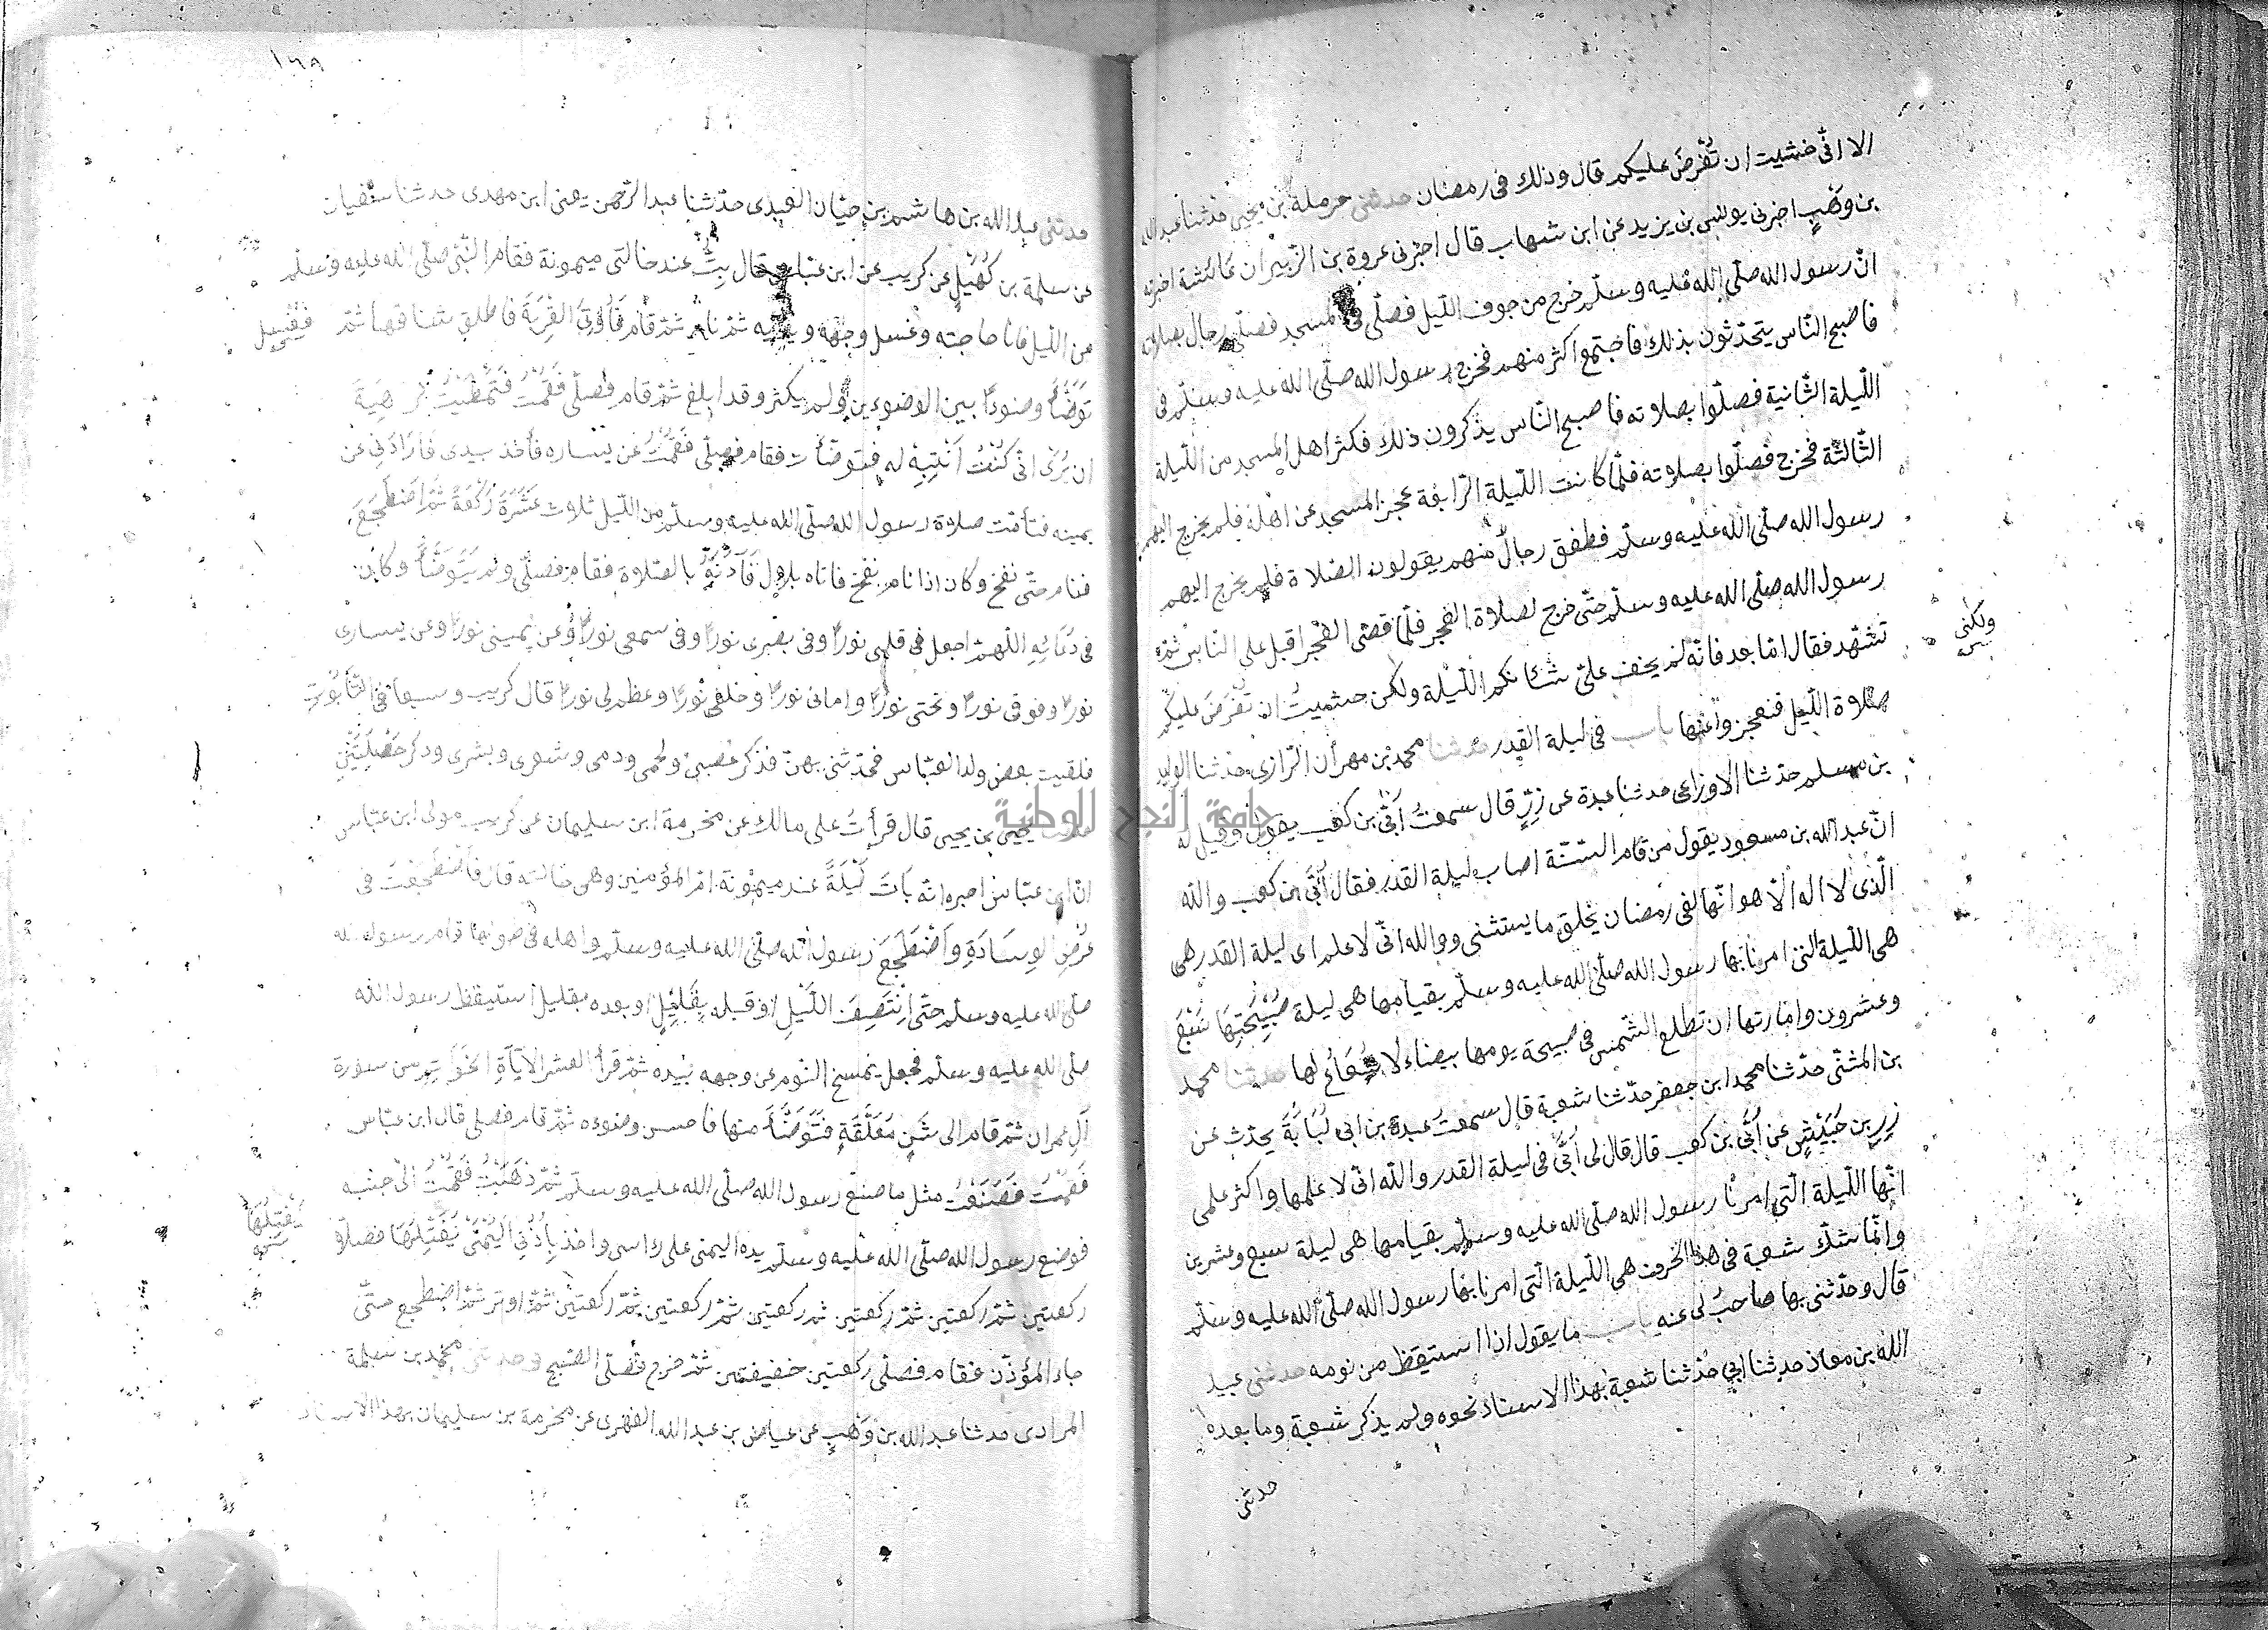 الا انّى خشيت ان تُفْرضَ عليكم قال وذلك فى رمضان حدثنى حرملة بن يحيى حدثنا عبد الله
بن وَهْبٍ اخبرنى يونس بن يزيد عن ابن شهاب قال اخبرنى عروة بن الزّبير ان عائشة اخبرته
انّ رسول الله صلّى الله عليه وسلّم خرج من جوف اللّيل فصلّى فى المسجد فصلّى رجال بصلاته
فاصبح النّاس يتحدّثون بذلك فاجتمع اكثر منهم فخرج رسول الله صلّى الله عليه وسلّم فى
اللّيلة الثّانية فصلّوا بصلاته فاصبح النّاس يذكرون ذلك فكثر اهل المسجد من اللّيلة
الثّالثة فخرج فصلّوا بصلاته فلمّا كانت اللّيلة الرّابعة عجز المسجد عن اهله فلم يخرج اليهم
رسول الله صلّى الله عليه وسلّم فطفق رجالٌ منهم يقولون الصّلاة فلم يخرج اليهم
رسول الله صلّى الله عليه وسلّم حتّى خرج لصلاة الفجر فلمّا قضى الفجر اقبل على النّاس ثمّ
تشهّد فقال امّا بعد فانّه لم يخف علىّ شانكم اللّيلة ولكن خشيتُ ان تُفْرَضَ عليكم
ولكنى
صلاة اللّيل فتعجزوا عنها باب فى ليلة القدر حدثنا محمد بن مهران الرّازى حدثنا الوليد
بن مسلم حدثنا الاوزاعى حدثنا عبدة عن زِرٍّ قال سمعتُ اُبَىَّ بن كعب يقول وقيل له
انّ عبد الله بن مسعود يقول من قام السّنة اصاب ليلة القدر فقال اُبَىُّ بن كعب والله
الّذى لا اله الّا هو انّها لفى رمضان يحلف ما يستثنى ووالله انّى لاعلم اى ليلة القدر هى
هى اللّيلة التى امرنا بها رسول الله صلّى الله عليه وسلّم بقيامها هى ليلة صَبِيْحَتِهَا سَبْعَ
وعشرون وامارتها ان تطلع الشّمس فى صبيحة يومها بيضاء لا شُعَاعُ لها حدثنا محمد
بن المثنّى حدّثنا محمد ابن جعفر حدّثنا شعبة قال سمعت عبدة بن ابى لُبَابَةَ يحدّث عن
زِرِ بن حُبَيْشٍ عن اُبَىّ بن كعب قال قال لى اُبَىٌّ فى ليلة القدر والله انّى لاعلمها واكثر علمى
انّها اللّيلة الّتى امرنا رسول الله صلّى الله عليه وسلّم بقيامها هى ليلة سبع وعشرين
وانّما شكّ شعبة فى هذا الحرف هى اللّيلة الّتى امرنا بها رسول الله صلّى الله عليه وسلّم
قال وحدّثنى بها صاحبٌ لى عنه باب ما يقول اذا استيقظ من نومه حدثنى عبيد
الله بن معاذ حدثنا ابى حدّثنا شعبة بهذا الاسناد نحوه ولم يذكر شعبة وما بعده
حدثنى
١٦٨
حدثنى عبد الله بن هاشم بن حيّان العبدى حدّثنا عبد الرّحمن يعنى ابن مهدى حدثنا سُفيان
عن سلمة بن كُهَيْلٍ عن كريب عن ابن عبّاس قال بِتُّ عند خالتى ميمونة فقام النّبىّ صلّى الله عليه وسلّم
من اللّيل فاتا حاجته وغسل وجهه ويديه ثمّ نام ثمّ قام فَاَوتَى القِرْبَةَ فاطلق شناقها ثمّ
تَوَضَّأ وضوءًا بين الوضوءين ولم يكثر وقد ابلغ ثمّ قام فصلّى فَقُمْتُ فَتَمَطَّيْتُ كَرَاهِيَةَ
ان يَرَى انّى كُنْتُ اَنْتَبِهُ له فتوضّأت فقام فصلّى فَقُمْتُ عن يساره فأخذ بيدى فَاَدَارَنِى عن
يمينه فتتامّت صلاة رسول الله صلّى الله عليه وسلّم من اللّيل ثلاث عَشَرَةَ رَكْعَةً ثُمّ اضطَجَعَ
فنام حتّى نفخ وكان اذا نام نفخ فاتاه بلال فَآذَنَهُ بالصّلاة فقام فصلّى ولم يَتَوَضَّأ وكان
فى دُعَائِهِ اللّهمّ اجعل فى قلبى نورًا وفى بصرى نورًا وفى سمعى نورًا وعن يمينى نورًا وعن يسارى
نورًا وفوقى نورًا وتحتى نورًا وامامى نورًا وخلفى نورًا وعظم لى نورًا قال كريب وسبعا فى التّابُوت
فلقيت بعض ولد العبّاس فحدّثنى بهنّ فذكر عصبى ولحمى ودمى وشعرى وبشرى وذكر خَصْلَتَيْنِ
حدثنا يحيى بن يحيى قال قرأتُ على مالك عن مخرمة ابن سليمان عن كريب مولى ابن عبّاس
انّ ابن عبّاس اخبره انّه بَاتَ لَيْلَةً عند ميمونة امّ المؤمنين وهى خالته قال فاَضْطَجَعْتُ فى
عَرْضِ الوِسَادَةِ واَضْطَجَعَ رسول الله صلّى الله عليه وسلّم واهله فى طولها فنام رسول الله
صلّى الله عليه وسلّم حتّى انْتَصِفَ اللَّيْلِ او قبله بِقَلِيْلٍ او بعده بقليل استيقظ رسول الله
صلّى الله عليه وسلّم فجعل يمسح النّوم عن وجهه بيده ثمّ قرأ العشر الايَاةَ الخَوَاتِم من سورة
آل عمران ثمّ قام الى شَنٍ مُعَلَّقَةٍ فَتَوَضَّأَ منها فاحسن وضوءه ثمّ قام فصلى قال ابن عبّاس
فَقُمْتُ فَصَنَعْتُ مثل ما صنع رسول الله صلّى الله عليه وسلّم ثمّ ذَهَبْتُ فَقُمْتُ الى جنبه
فوضع رسول الله صلّى الله عليه وسلّم يده اليمنى على راسى واخذ بِاُذُنِى اليُمْنَى يَفْتِلُهَا فصلّى
يَفْتِلُهَا
ركعتين ثمّ ركعتين ثمّ ركعتين ثم ركعتين ثمّ ركعتين ثمّ ركعتين ثمّ اوتر ثمّ اضطجع حتّى
جاء المؤذّن فقام فصلّى ركعتين خفيفتين ثمّ خرج فصلّى الصّبح وحدثنى محمد بن سلمة
المرادى حدثنا عبد الله بن وَهْبٍ عن عياض بن عبد الله الفهرى عن مخرمة بن سليمان بهذا الاسناد
جامعة النجاح الوطنية